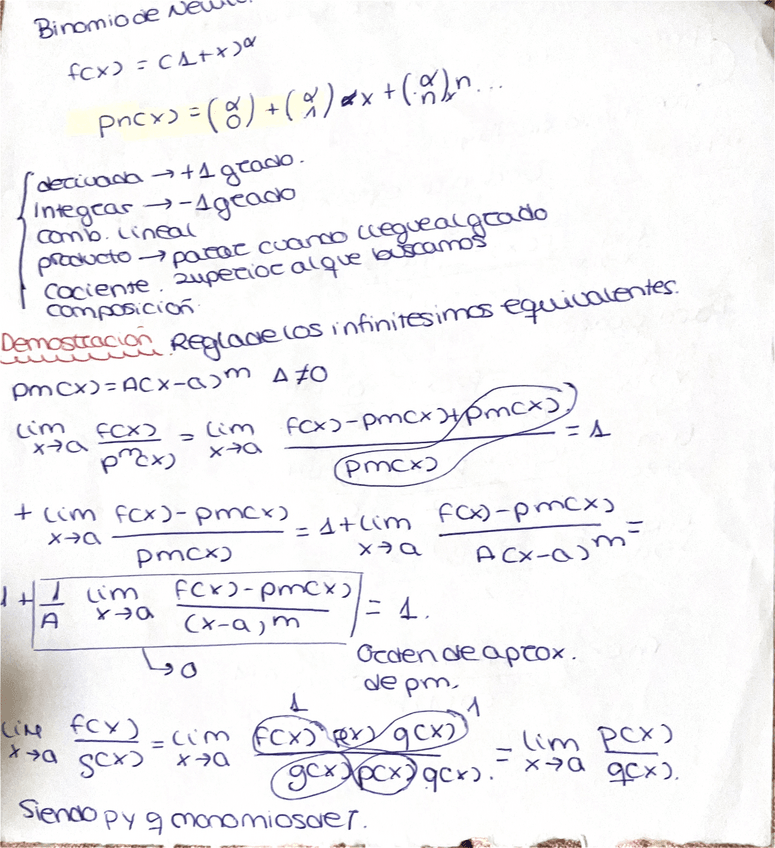 Binomio de Newto
f(x) = (1+x)^α
pn(x) = (α 0) + (α 1) x + (α n) x^n ...
derivada → +1 grado.
Integrar → -1 grado
comb. lineal
producto → parar cuando llegue al grado
cociente. superior al que buscamos
composición.
Demostración. Regla de los infinitesimos equivalentes.
pm(x) = A(x-a)^m A≠0
lim x→a f(x)/p^m(x) = lim x→a (f(x)-pm(x)+pm(x))/pm(x) = 1
+ lim x→a (f(x)-pm(x))/pm(x) = 1 + lim x→a (f(x)-pm(x))/(A(x-a)^m) =
1 + 1/A lim x→a (f(x)-pm(x))/(x-a)^m = 1.
↳ 0
Orden de aprox.
de pm.
1 1
lim x→a f(x)/g(x) = lim x→a (f(x) p(x) q(x))/(g(x) p(x) q(x)). = lim x→a p(x)/q(x).
Siendo p y q monomios de T.